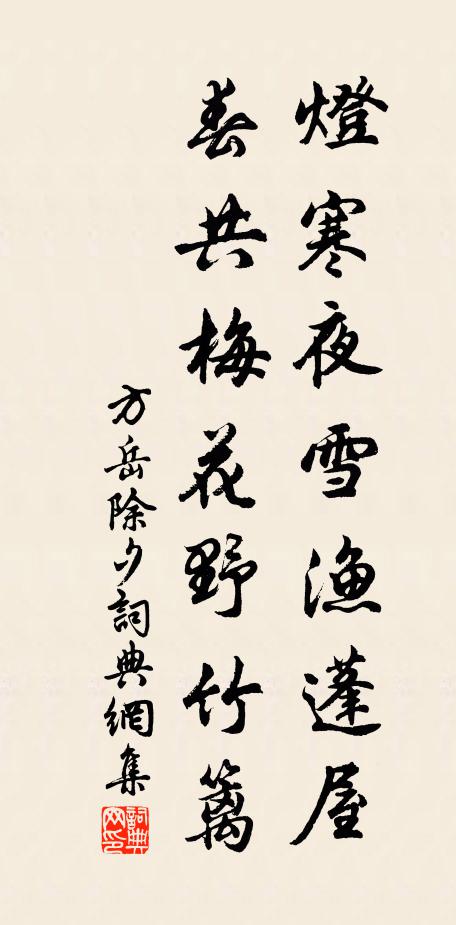 燈寒夜雪漁蓬屋
春共梅花野竹籬
方岳除夕詞典網集
詞典網印